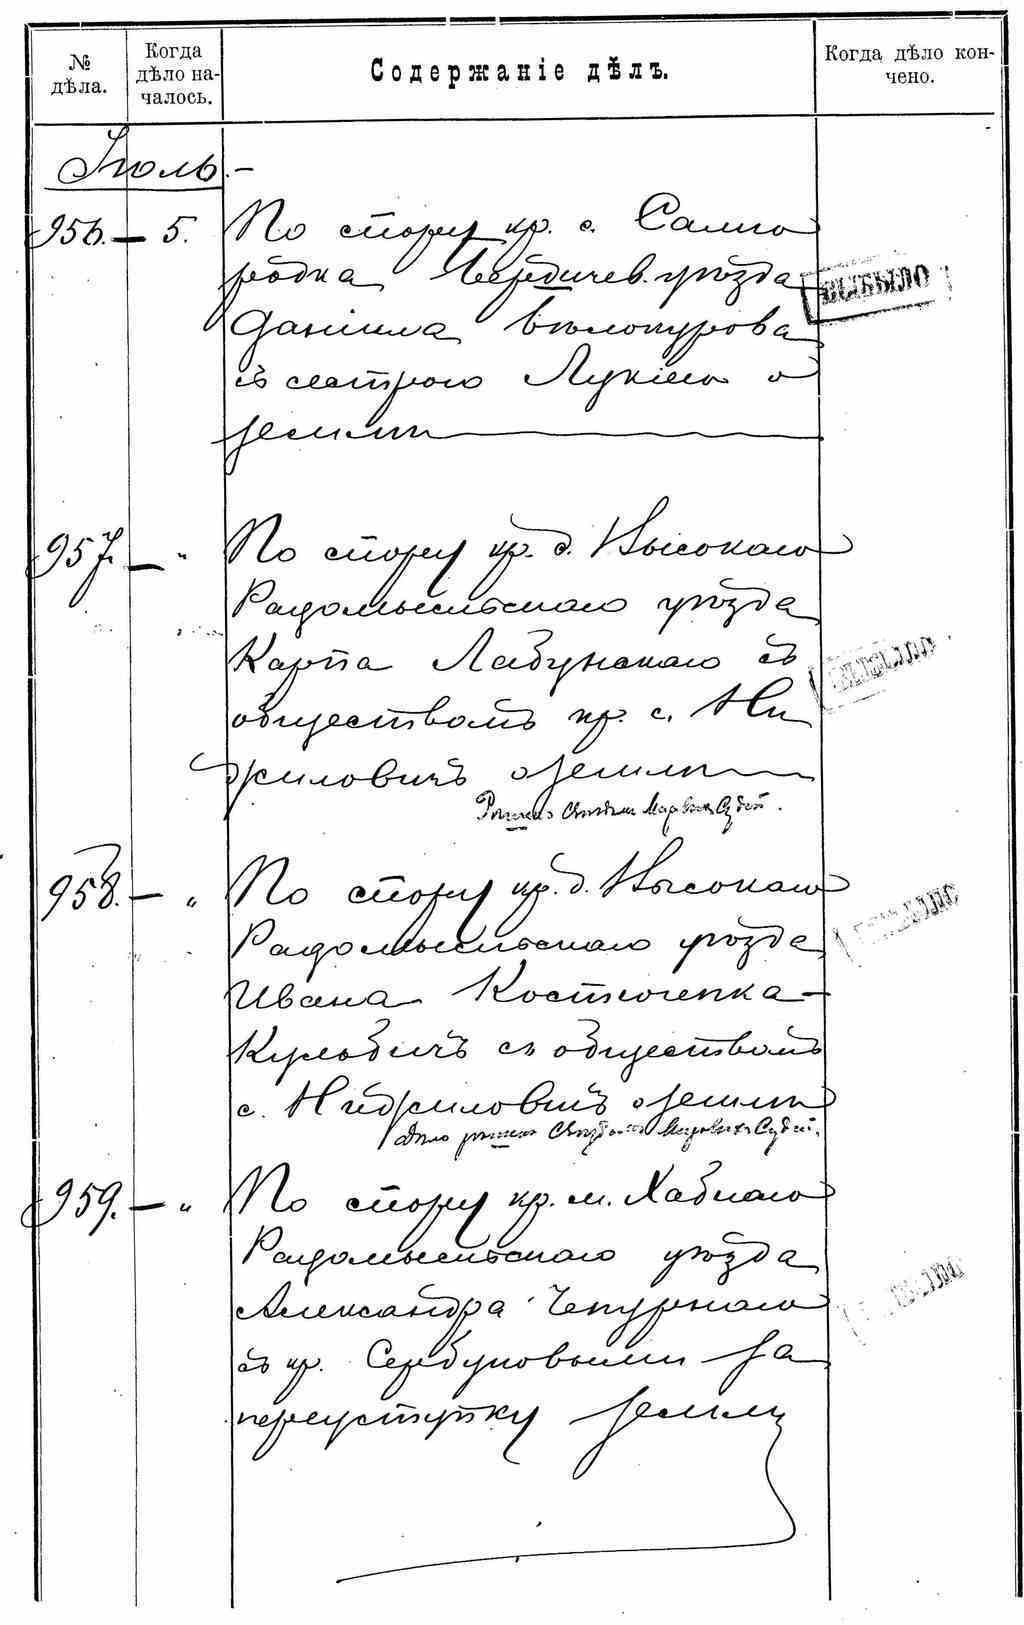 № дѣла.
Когда дѣло на-
чалось.
Содержаніе дѣлъ.
Когда дѣло кон-
чено.
Іюль.-
956. — 5. По спору кр. с. Самго
родка Бердичев. уѣзда
Даніила Бѣлокурова
съ сестрою Лукіею о
землѣ
957. — „ По спору кр. д. Высокаго
Радомысльскаго уѣзда
Карпа Лабунскаго съ
обществомъ кр. с. Ни
жиловичъ о землѣ
Рѣшено Съѣздомъ Мировыхъ Судей.
958. — „ По спору кр. д. Высокаго
Радомысльскаго уѣзда
Ивана Костюченка-
Кульбичъ съ обществомъ
с. Нижиловичъ о землѣ
дѣло рѣшено Съѣздомъ Мировыхъ Судей.
959. — „ По спору кр. м. Хабнаго
Радомысльскаго уѣзда
Александра Чепурнаго
съ кр. Сербуновыми за
переуступку земли